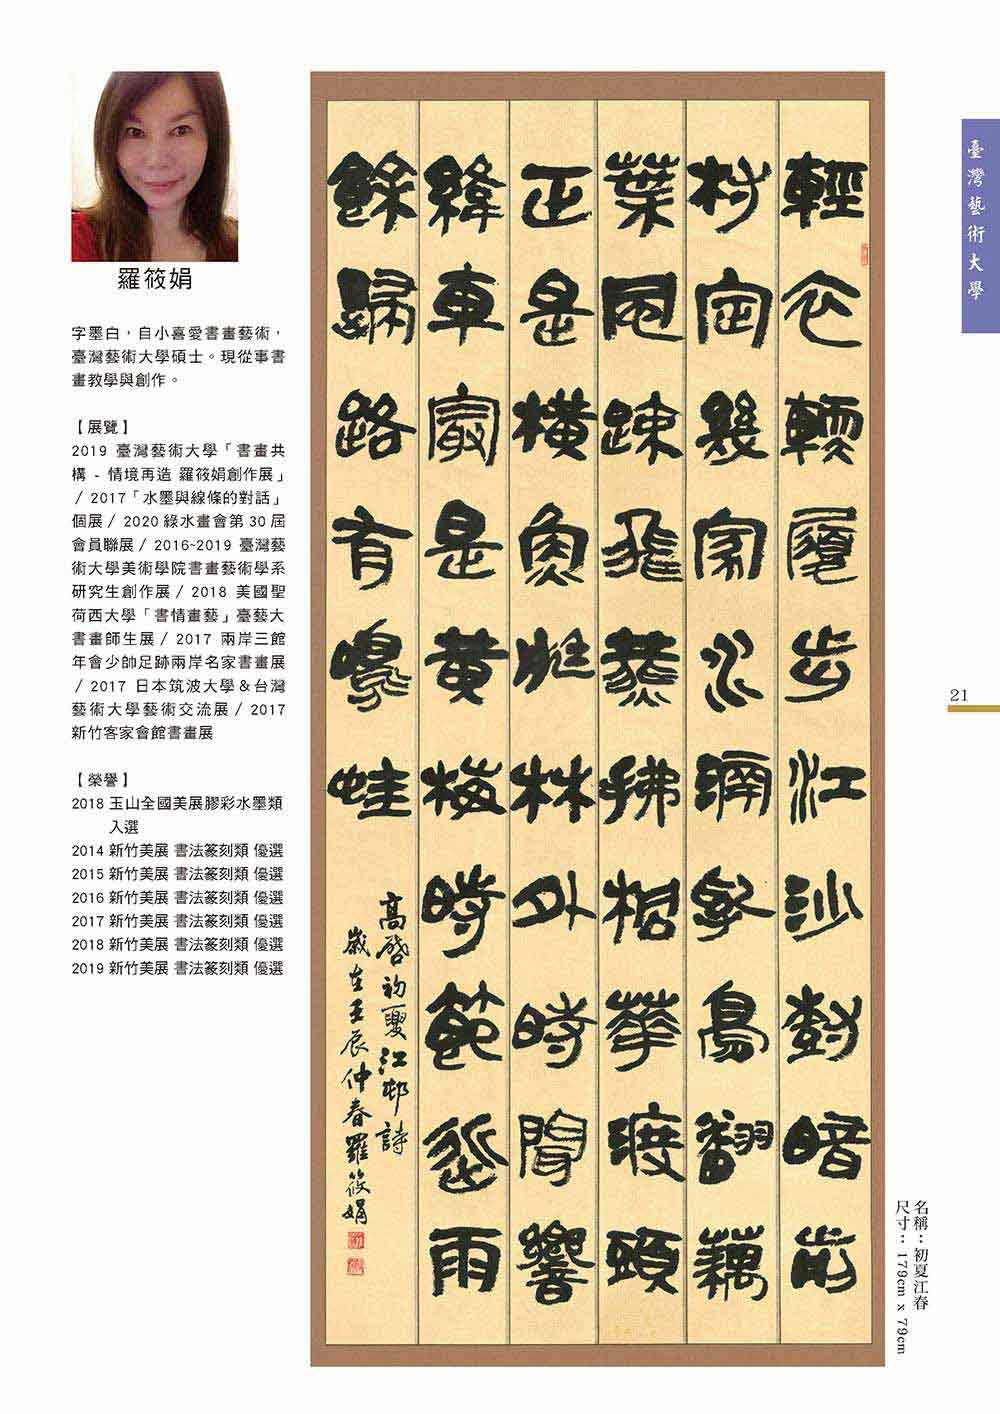 羅筱娟
字墨白，自小喜愛書畫藝術，
臺灣藝術大學碩士。現從事書
畫教學與創作。
【展覽】
2019 臺灣藝術大學「書畫共
構 - 情境再造 羅筱娟創作展」
/ 2017「水墨與線條的對話」
個展 / 2020 綠水畫會第 30 屆
會員聯展 / 2016~2019 臺灣藝
術大學美術學院書畫藝術學系
研究生創作展 / 2018 美國聖
荷西大學「書情畫藝」臺藝大
書畫師生展 / 2017 兩岸三館
年會少帥足跡兩岸名家書畫展
/ 2017 日本筑波大學＆台灣
藝術大學藝術交流展 / 2017
新竹客家會館書畫展
【榮譽】
2018 玉山全國美展膠彩水墨類
入選
2014 新竹美展 書法篆刻類 優選
2015 新竹美展 書法篆刻類 優選
2016 新竹美展 書法篆刻類 優選
2017 新竹美展 書法篆刻類 優選
2018 新竹美展 書法篆刻類 優選
2019 新竹美展 書法篆刻類 優選
輕衣輭履步江沙樹暗前
村定幾家水滿乳鳧翻藕
葉風疎飛燕拂桐華渡頭
正是橫魚艇林外時聞響
緯車最是黃梅時節近雨
餘歸路有鳴蛙
高啓初夏江邨詩
歲在壬辰仲春羅筱娟
臺灣藝術大學
21
名稱：初夏江春
尺寸：179cm x 79cm